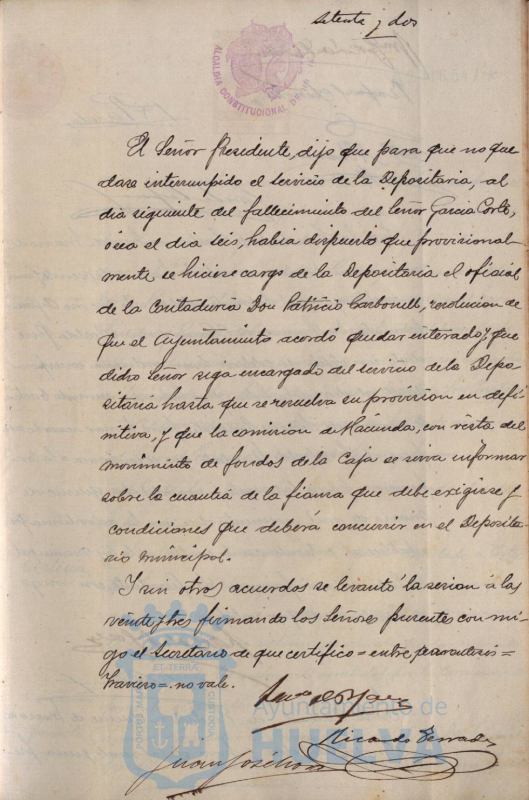 Setenta y dos
ALCALDIA CONSTITUCIONAL DE
El Señor Presidente, dijo que para que no que
dase interrumpido el servicio de la Depositaria, al
dia siguiente del fallecimiento del Señor Garcia Cortés,
ósea el dia seis, habia dispuesto que provisional
mente se hiciese cargo de la Depositaria el oficial
de la Contaduria Don Patricio Carbonell, resolucion de
que el Ayuntamiento acordó quedar enterado y que
dicho Señor siga encargado del servicio de la Depo
sitaria hasta que se resuelva su provision en defi
nitiva, y que la comision de Hacienda, con vista del
movimiento de fondos de la Caja se sirva informar
sobre la cuantia de la fianza que debe exigirse y
condiciones que deberá concurrir en el Deposita
rio municipal.
Y sin otros acuerdos se levantó la sesion á las
veinte y tres firmando los Señores presentes con mi
go el Secretario de que certifico = entre parentesis =
= no vale.
Ricardo Terrades
Juan José
PORTUS MARIS ET TERRÆ CUSTODIA
Ayuntamiento de
HUELVA